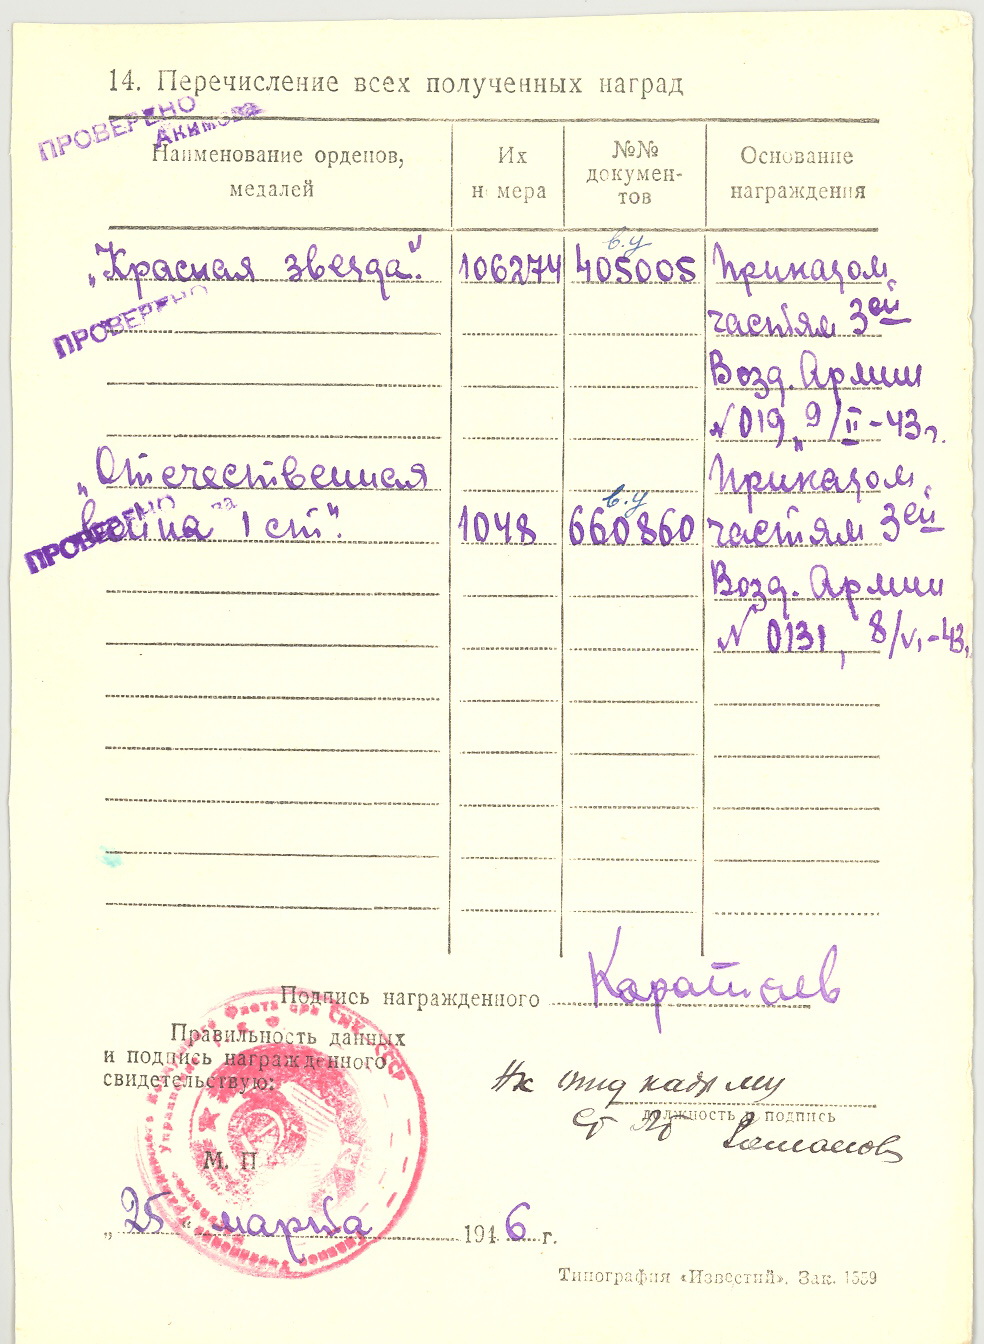 14. Перечисление всех полученных наград
ПРОВЕРЕНО
Акимова
Наименование орденов, медалей
Их номера
№№ документов
Основание награждения
„Красная звезда".
106274
в.у
405005
Приказом
частям 3ей
Возд. Армии
N 019, 9/II-43г.
ПРОВЕРЕНО
„Отечественная
война 1 ст".
1048
в.у
660860
Приказом
частям 3ей
Возд. Армии
N 0131, 8/VI-43г.
ПРОВЕРЕНО
Подпись награжденного
Правильность данных
и подпись награжденного
свидетельствую:
должность и подпись
М. П
„25" марта 1946 г.
Типография «Известий». Зак. 1559